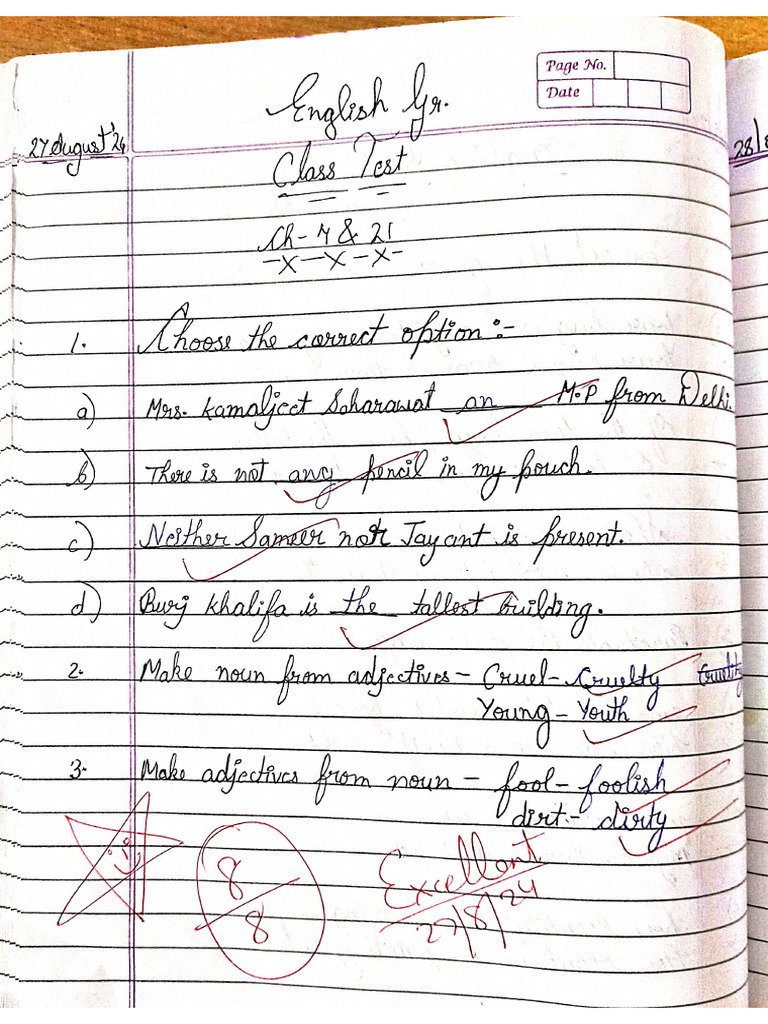 Page No.
Date
English Gr.
27 August '24
28/8
Class Test
Ch - 7 & 21
-x-x-x-
1. Choose the correct option :-
a) Mrs. Kamaljeet Saharawat an M.P from Delhi.
b) There is not any pencil in my pouch.
c) Neither Sameer not Jayant is present.
d) Burj Khalifa is the tallest building.
2. Make noun from adjectives - Cruel - Cruelty
Young - Youth
3. Make adjectives from noun - fool - foolish
dirt - dirty
8/8
Excellent
27/8/24